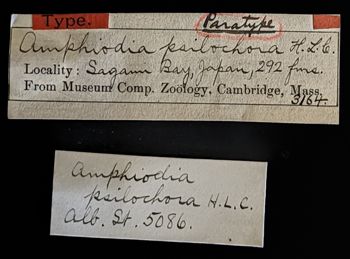 Type.
Paratype
Amphiodia psilochora H.L.C.
Locality: Sagami Bay, Japan, 292 fms.
From Museum Comp. Zoölogy, Cambridge, Mass.
3164.
Amphiodia
psilochora H.L.C.
Alb. St. 5086.